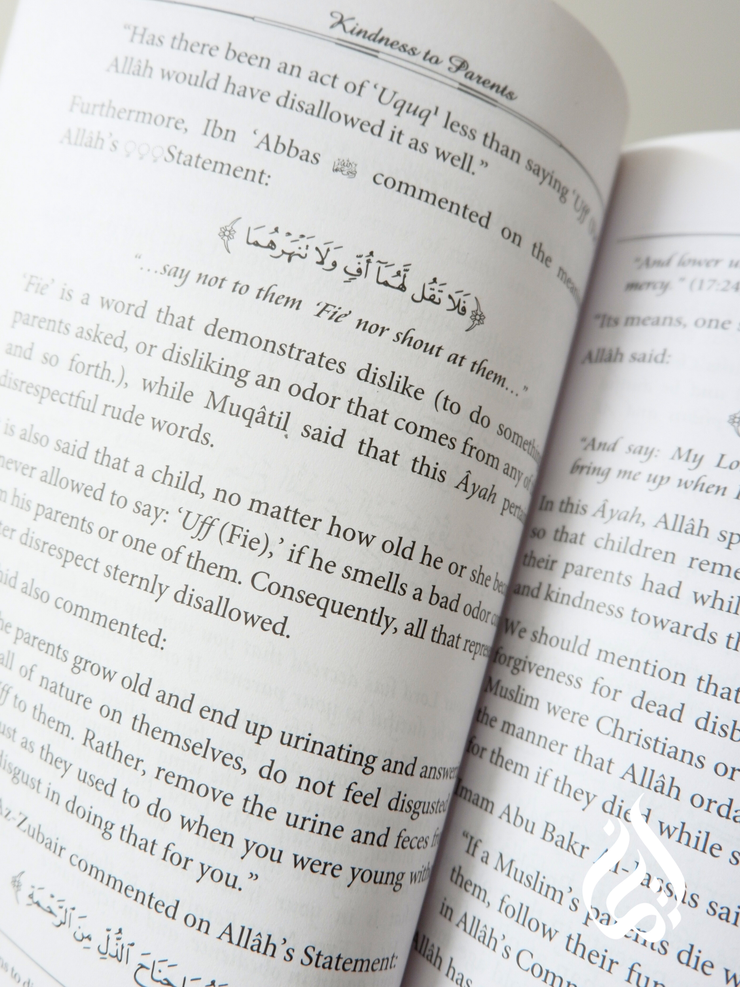 Kindness to Parents
“Has there been an act of ‘Uquq¹ less than saying ‘Uff
Allâh would have disallowed it as well.”
Furthermore, Ibn ‘Abbas commented on the
Allâh’s Statement:
﴿فَلَا تَقُل لَّهُمَآ أُفٍّ وَلَا نَنْهَرْهُمَا﴾
“…say not to them ‘Fie’ nor shout at them…”
‘Fie’ is a word that demonstrates dislike (to do
parents asked, or disliking an odor that comes from any of
and so forth.), while Muqâtil said that this Âyah
disrespectful rude words.
is also said that a child, no matter how old he or she
never allowed to say: ‘Uff (Fie),’ if he smells a bad odor
his parents or one of them. Consequently, all that
disrespect sternly disallowed.
also commented:
parents grow old and end up urinating and
of nature on themselves, do not feel disgusted
to them. Rather, remove the urine and feces
as they used to do when you were young
disgust in doing that for you.”
Az-Zubair commented on Allâh’s Statement:
جَنَاحَ ٱلذُّلِّ مِنَ ٱلرَّحْمَةِ﴾
“And lower
mercy.” (17:24
“Its means, one
Allâh said:
“And say: My
bring me up when
In this Âyah, Allâh
so that children
their parents had
and kindness towards
We should mention that
forgiveness for dead
Muslim were Christians or
the manner that Allâh
for them if they died while
Imam Abu Bakr
“If a Muslim’s parents die
them, follow their
in Allâh’s
Allâh has